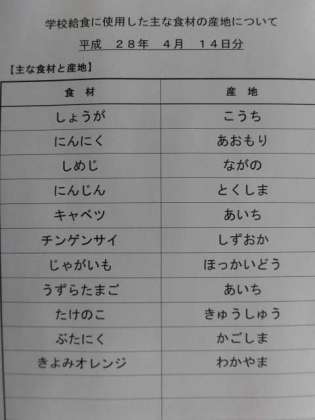 学校給食に使用した主な食材の産地について
平成 28年 4月 14日分
【主な食材と産地】
食 材 産 地
しょうが こうち
にんにく あおもり
しめじ ながの
にんじん とくしま
キャベツ あいち
チンゲンサイ しずおか
じゃがいも ほっかいどう
うずらたまご あいち
たけのこ きゅうしゅう
ぶたにく かごしま
きよみオレンジ わかやま